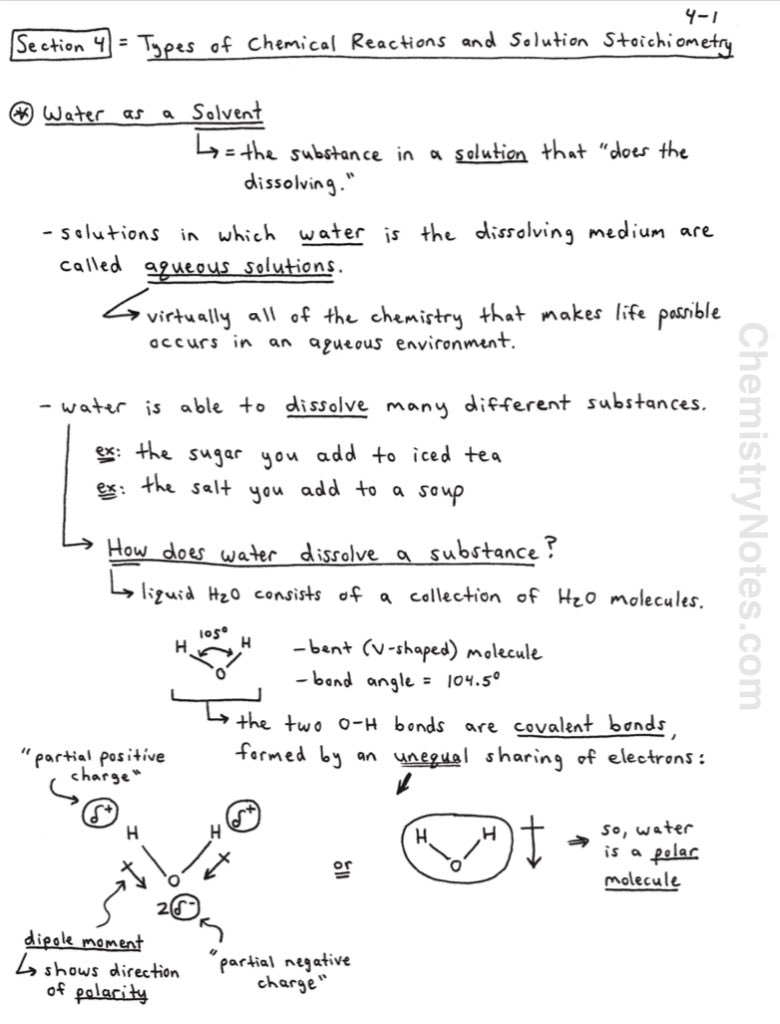 4-1
Section 4 = Types of Chemical Reactions and Solution Stoichiometry
* Water as a Solvent
↳ = the substance in a solution that "does the
dissolving."
- solutions in which water is the dissolving medium are
called aqueous solutions.
→ virtually all of the chemistry that makes life possible
occurs in an aqueous environment.
- water is able to dissolve many different substances.
ex: the sugar you add to iced tea
ex: the salt you add to a soup
→ How does water dissolve a substance?
↳ liquid H₂O consists of a collection of H₂O molecules.
105°
H H
O
- bent (V-shaped) molecule
- bond angle = 104.5°
↳ the two O-H bonds are covalent bonds,
formed by an unequal sharing of electrons:
"partial positive
charge"
δ+ δ+
H H
O
2δ-
dipole moment
↳ shows direction
of polarity
"partial negative
charge"
or
H H
O
⇒ so, water
is a polar
molecule
ChemistryNotes.com